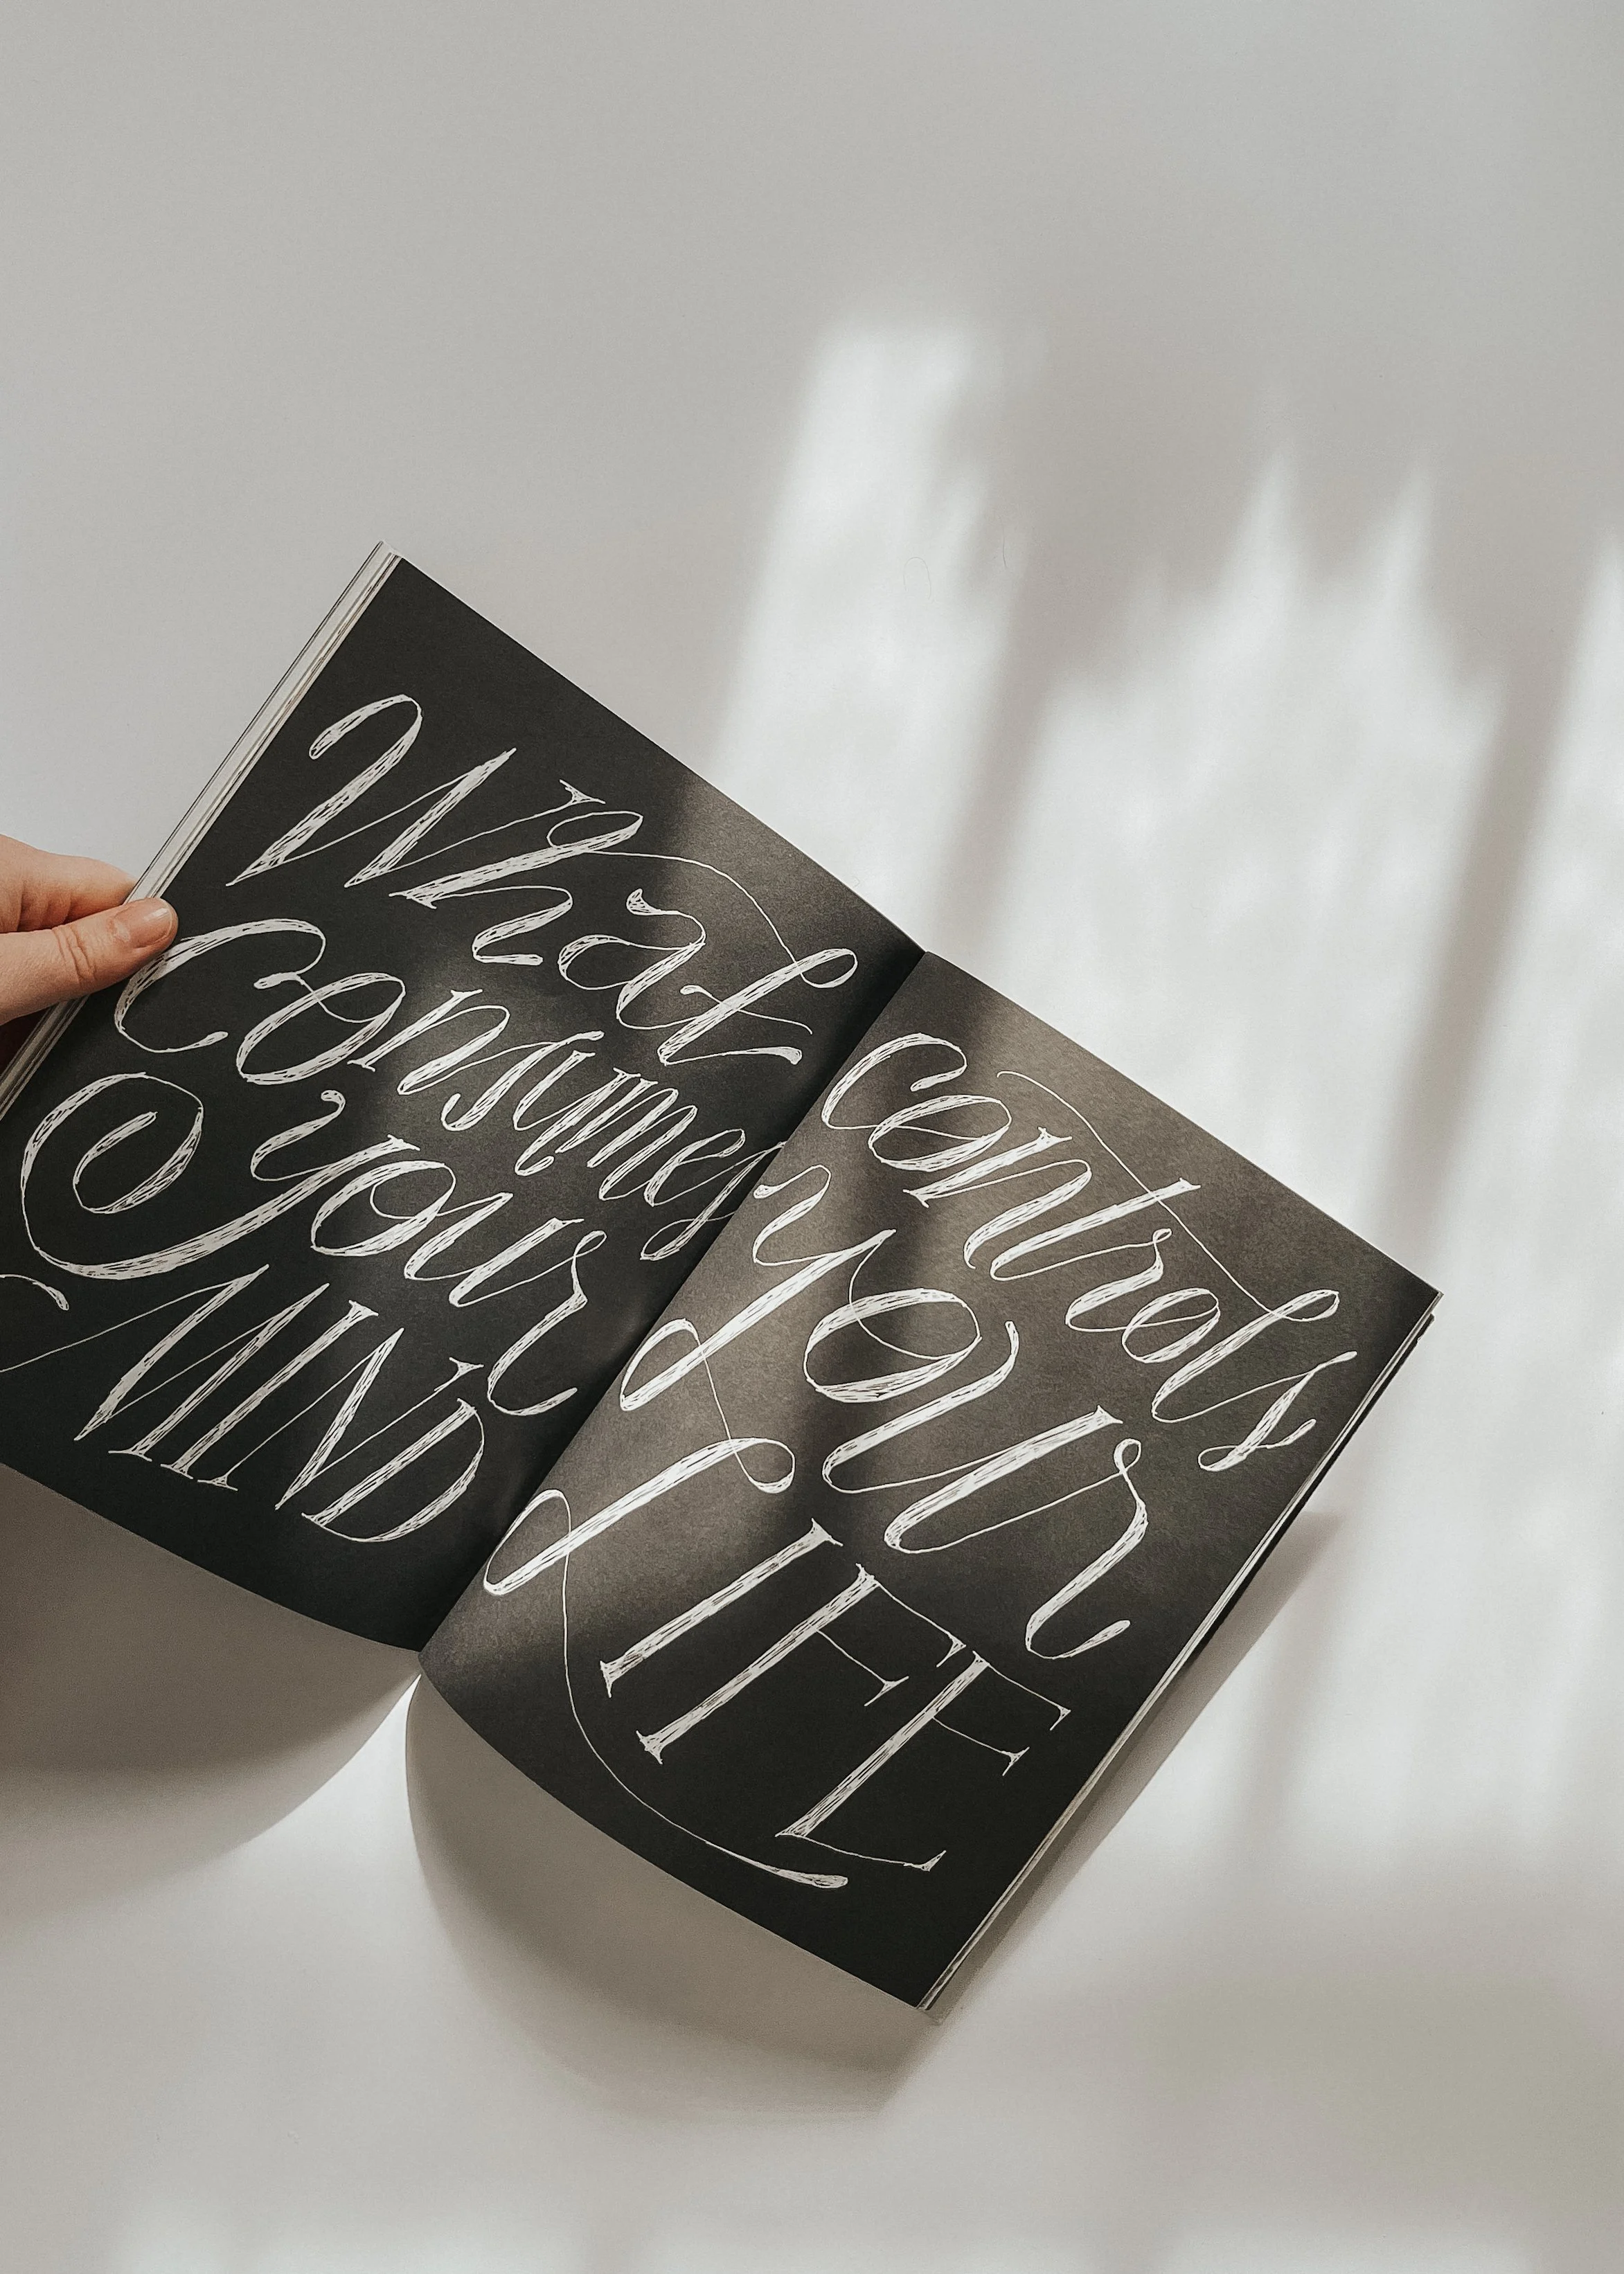 What
Consumes
your
MIND
controls
your
LIFE